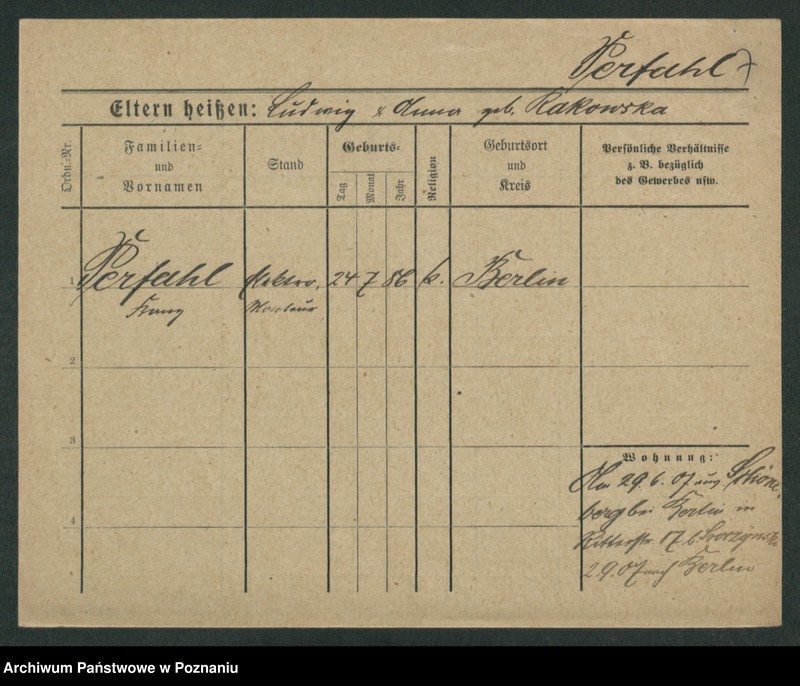 Perfahl
Eltern heißen: Ludwig & Anna geb. Rakowska
Ordn.-Nr.
Familien- und Vornamen
Stand
Geburts-
Tag
Monat
Jahr
Religion
Geburtsort und Kreis
Persönliche Verhältnisse
z. B. bezüglich
des Gewerbes usw.
1 Perfahl Elektro. 24 7 86 k. Berlin
Franz Monteur
2
3
Wohnung:
Am 29.6.07 aus Schöne-
berg bei Berlin in
4
Ritterstr 17 b.
2.9.07 nach Berlin
Archiwum Państwowe w Poznaniu